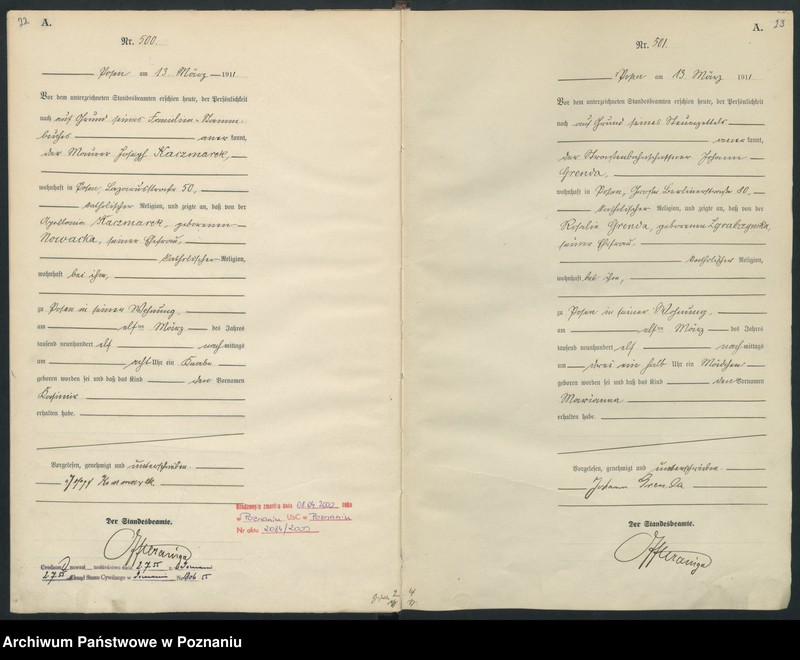 22 A.
Nr. 500.
Posen am 13. März 1911
Vor dem unterzeichneten Standesbeamten erschien heute, der Persönlichkeit
nach auf Grund seines Familien-Stamm-
buches anerkannt,
der Maurer Joseph Kaczmarek,
wohnhaft in Posen, Lazarusstraße 50,
katholischer Religion, und zeigte an, daß von der
Apollonia Kaczmarek, geborenen
Nowacka, seiner Ehefrau,
katholischer Religion,
wohnhaft bei ihm,
zu Posen in seiner Wohnung
am elften März des Jahres
tausend neunhundert elf nachmittags
um acht Uhr ein Knabe
geboren worden sei und daß das Kind den Vornamen
Kasimir
erhalten habe.
Vorgelesen, genehmigt und unterschrieben.
Der Standesbeamte.
zmarła dnia 08.04.2000 roku
w Poznaniu USC w Poznaniu
Nr aktu
A. 23
Nr. 501.
Posen am 13. März 1911
Vor dem unterzeichneten Standesbeamten erschien heute, der Persönlichkeit
nach auf Grund seines Steuerzettels
anerkannt,
der Straßenbahnschaffner Johann
Grenda,
wohnhaft in Posen, Große Berlinerstraße 80,
katholischer Religion, und zeigte an, daß von der
Rosalie Grenda, geborenen
seiner Ehefrau,
katholischer Religion,
wohnhaft bei ihm,
zu Posen in seiner Wohnung
am elften März des Jahres
tausend neunhundert elf nachmittags
um drei ein halb Uhr ein Mädchen
geboren worden sei und daß das Kind den Vornamen
Marianna
erhalten habe.
Vorgelesen, genehmigt und unterschrieben.
Johann Grenda
Der Standesbeamte.
Archiwum Państwowe w Poznaniu